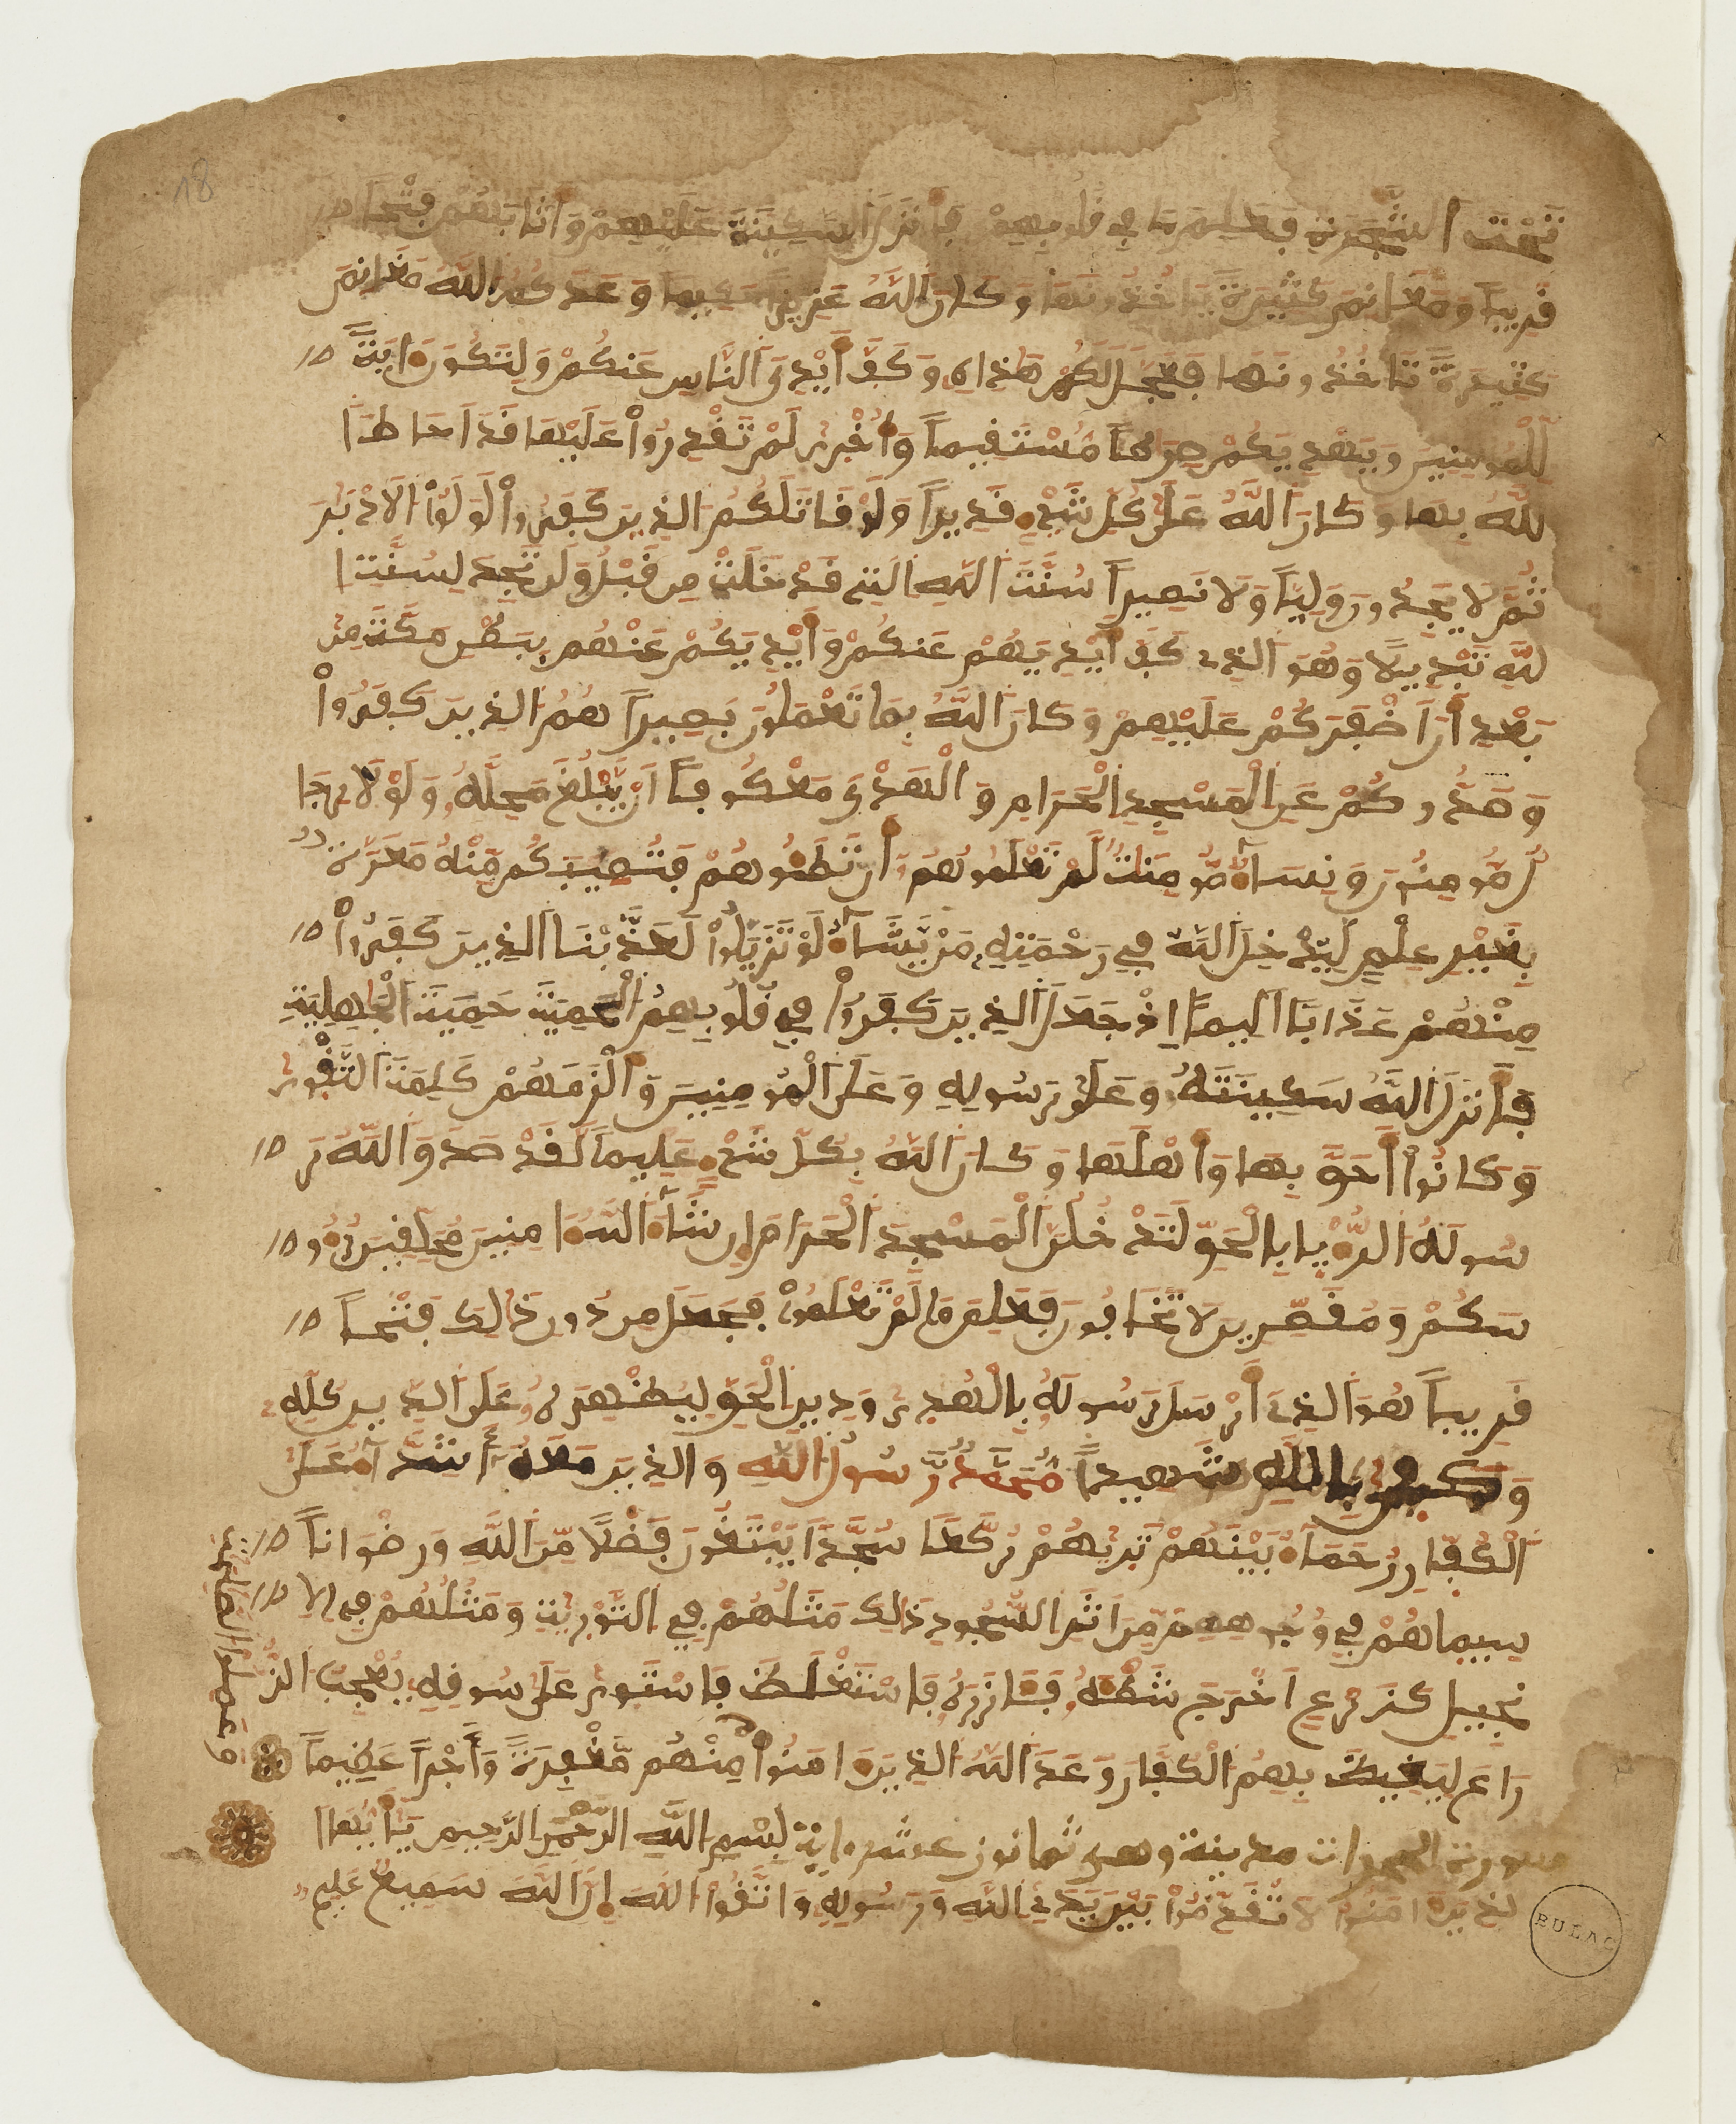 تَحْتَ الشَّجَرَةِ فَعَلِمَ مَا فِي قُلُوبِهِمْ فَأَنزَلَ السَّكِينَةَ عَلَيْهِمْ وَأَثَابَهُمْ فَتْحاً
قَرِيباً وَمَغَانِمَ كَثِيرَةً يَاخُذُونَهَا وَكَانَ اللَّهُ عَزِيزاً حَكِيماً وَعَدَكُمُ اللَّهُ مَغَانِمَ
كَثِيرَةً تَاخُذُونَهَا فَعَجَّلَ لَكُمْ هَٰذِهِ وَكَفَّ أَيْدِيَ النَّاسِ عَنكُمْ وَلِتَكُونَ ءَايَةً
لِّلْمُومِنِينَ وَيَهْدِيَكُمْ صِرَٰطاً مُّسْتَقِيماً وَأُخْرَىٰ لَمْ تَقْدِرُواْ عَلَيْهَا قَدَ اَحَاطَ ا
للَّهُ بِهَا وَكَانَ اللَّهُ عَلَىٰ كُلِّ شَيْءٍ قَدِيراً وَلَوْ قَاتَلَكُمُ الذِينَ كَفَرُواْ لَوَلَّوُاْ الَادْبَٰرَ
ثُمَّ لَا يَجِدُونَ وَلِيّاً وَلَا نَصِيراً سُنَّتَ اللَّهِ التِي قَدْ خَلَتْ مِن قَبْلُ وَلَن تَجِدَ لِسُنَّتِ ا
للَّهِ تَبْدِيلًا وَهُوَ الذِي كَفَّ أَيْدِيَهُمْ عَنكُمْ وَأَيْدِيَكُمْ عَنْهُم بِبَطْنِ مَكَّةَ مِنۢ
بَعْدِ أَنَ اَظْفَرَكُمْ عَلَيْهِمْ وَكَانَ اللَّهُ بِمَا تَعْمَلُونَ بَصِيراً هُمُ الذِينَ كَفَرُواْ
وَصَدُّوكُمْ عَنِ الْمَسْجِدِ الْحَرَامِ وَالْهَدْيَ مَعْكُوفاً اَنْ يَّبْلُغَ مَحِلَّهُۥ وَلَوْلَا رِجَا
لٌ مُّومِنُونَ وَنِسَآءٌ مُّومِنَٰتٌ لَّمْ تَعْلَمُوهُمُۥ أَن تَطَـُٔوهُمْ فَتُصِيبَكُم مِّنْهُم مَّعَرَّةٌۢ
بِغَيْرِ عِلْمٍ لِّيُدْخِلَ اللَّهُ فِي رَحْمَتِهِۦ مَنْ يَّشَآءُ لَوْ تَزَيَّلُواْ لَعَذَّبْنَا الذِينَ كَفَرُواْ
مِنْهُمْ عَذَاباً اَلِيماً اِذْ جَعَلَ الذِينَ كَفَرُواْ فِي قُلُوبِهِمُ الْحَمِيَّةَ حَمِيَّةَ الْجَٰهِلِيَّةِ
فَأَنزَلَ اللَّهُ سَكِينَتَهُۥ عَلَىٰ رَسُولِهِۦ وَعَلَى الْمُومِنِينَ وَأَلْزَمَهُمْ كَلِمَةَ التَّقْوَىٰ
وَكَانُواْ أَحَقَّ بِهَا وَأَهْلَهَا وَكَانَ اللَّهُ بِكُلِّ شَيْءٍ عَلِيماً لَّقَدْ صَدَقَ اللَّهُ رَ
سُولَهُ الرُّءْيَا بِالْحَقِّ لَتَدْخُلُنَّ الْمَسْجِدَ الْحَرَامَ إِن شَآءَ اللَّهُ ءَامِنِينَ مُحَلِّقِينَ رُءُو
سَكُمْ وَمُقَصِّرِينَ لَا تَخَافُونَ فَعَلِمَ مَا لَمْ تَعْلَمُواْ فَجَعَلَ مِن دُونِ ذَٰلِكَ فَتْحاً
قَرِيباً هُوَ الذِي أَرْسَلَ رَسُولَهُۥ بِالْهُدَىٰ وَدِينِ الْحَقِّ لِيُظْهِرَهُۥ عَلَى الدِّينِ كُلِّهِۦ
وَكَفَىٰ بِاللَّهِ شَهِيداً مُّحَمَّدٌ رَّسُولُ اللَّهِ وَالذِينَ مَعَهُۥ أَشِدَّآءُ عَلَى
الْكُفَّارِ رُحَمَآءُ بَيْنَهُمْ تَرَىٰهُمْ رُكَّعاً سُجَّداً يَبْتَغُونَ فَضْلًا مِّنَ اللَّهِ وَرِضْوَاناً
سِيمَاهُمْ فِي وُجُوهِهِم مِّنَ اَثَرِ السُّجُودِ ذَٰلِكَ مَثَلُهُمْ فِي التَّوْرَىٰةِ وَمَثَلُهُمْ فِي الِا
نجِيلِ كَزَرْعٍ اَخْرَجَ شَطْـَٔهُۥ فَـَٔازَرَهُۥ فَاسْتَغْلَظَ فَاسْتَوَىٰ عَلَىٰ سُوقِهِۦ يُعْجِبُ الزُّ
رَّاعَ لِيَغِيظَ بِهِمُ الْكُفَّارَ وَعَدَ اللَّهُ الذِينَ ءَامَنُواْ مِنْهُم مَّغْفِرَةً وَأَجْراً عَظِيماً
سورة الحجرات مدينة وهي ثمانون عشر ءاية بِسْمِ اللَّهِ الرَّحْمَٰنِ الرَّحِيمِ يَٰٓأَيُّهَا ا
لذِينَ ءَامَنُواْ لَا تُقَدِّمُواْ بَيْنَ يَدَيِ اللَّهِ وَرَسُولِهِۦ وَاتَّقُواْ اللَّهَ إِنَّ اللَّهَ سَمِيعٌ عَلِيمٌ
18
BULAC